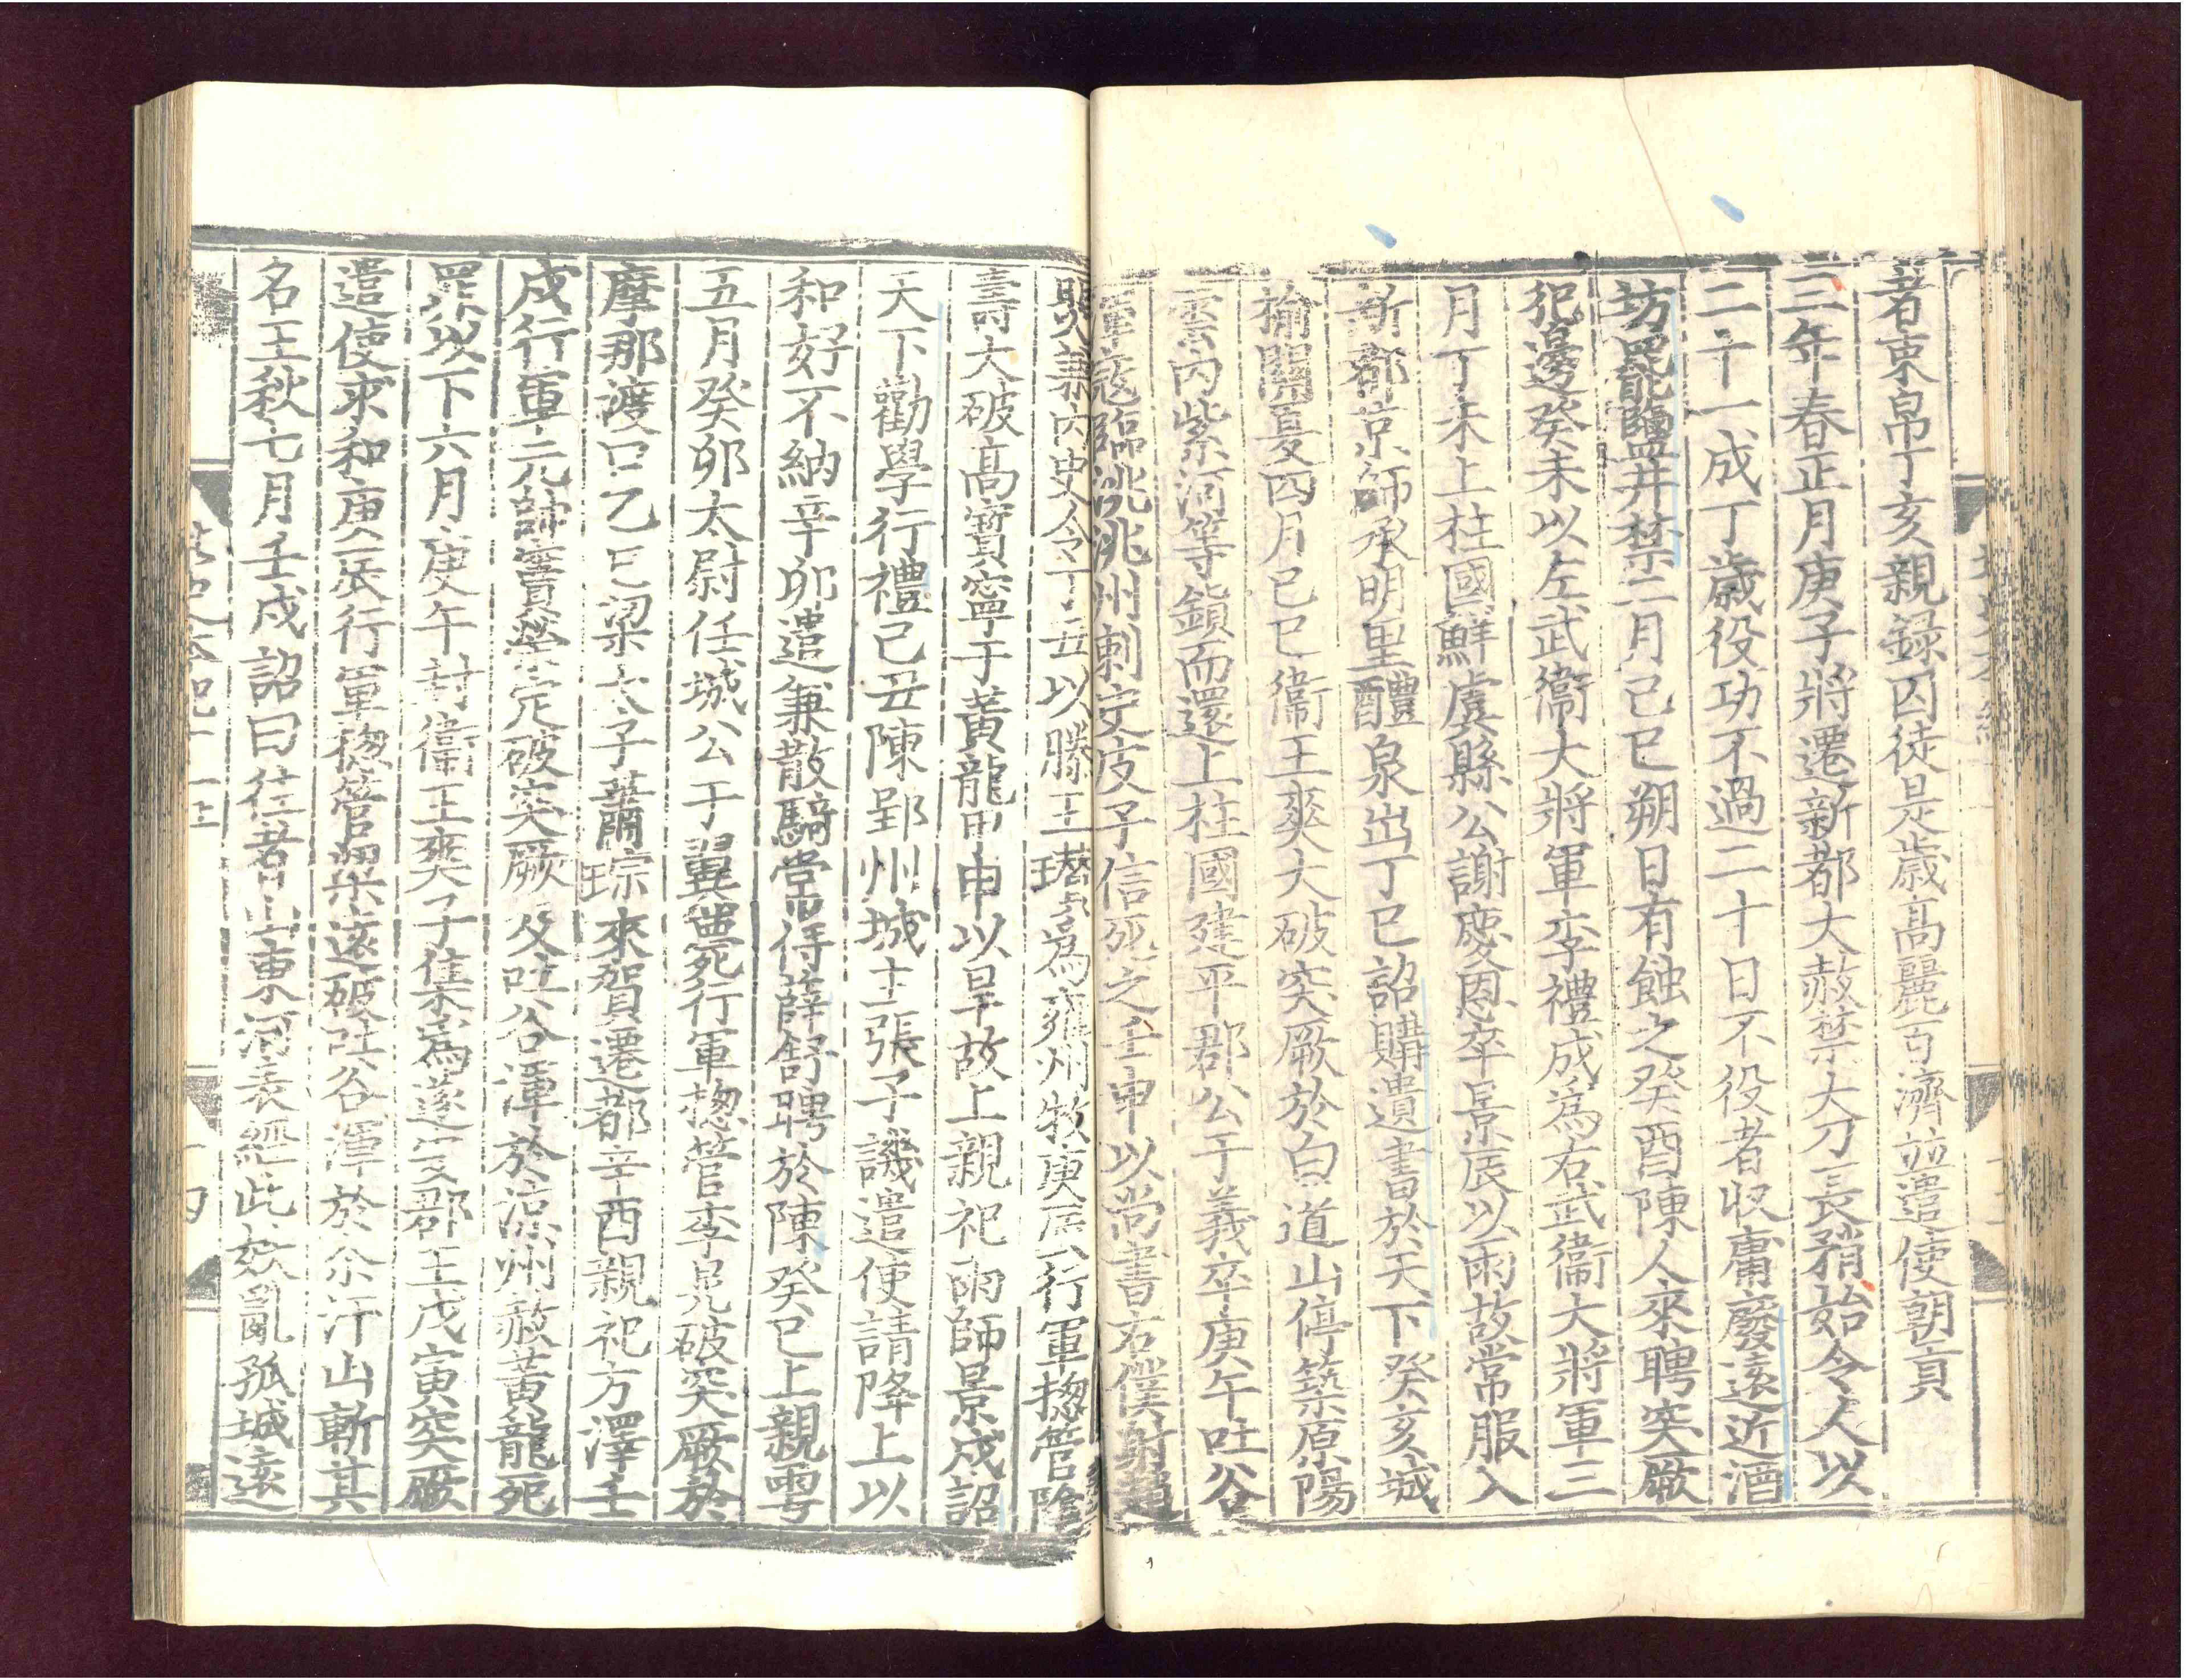 著束帛丁亥親録囚徒是歲髙麗百濟並遣使朝貢
三年春正月庚子將遷新都大赦禁大刀長矟始令人以
二十一成丁歲役功不過二十日不役者收庸廢遠近酒
坊罷鹽井禁二月己巳朔日有蝕之癸酉陳人來聘突厥
犯邊癸未以左武衞大將軍李禮成爲右武衞大將軍三
月丁未上柱國鮮虞縣公謝慶恩卒景辰以雨故常服入
新都京師承明里醴泉出丁巳詔購遺書於天下癸亥城
榆關夏四月己巳衞王爽大破突厥於白道山停築原陽
雲内紫河等鎮而還上柱國建平郡公于義卒庚午吐谷
渾寇臨洮洮州刺史皮子信死之壬申以尚書右僕射趙
煚兼内史令丁丑以滕王瓚爲雍州牧庚辰行軍揔管陰
壽大破髙寶寧于黃龍甲申以旱故上親祀雨師景戌詔
天下勸學行禮己丑陳郢州城主張子譏遣使請降上以
和好不納辛卯遣兼散騎常侍薛舒聘於陳癸巳上親雩
五月癸卯太尉任城公于翼薨行軍揔管李晃破突厥於
摩那渡口乙巳梁太子蕭琮來賀遷都辛酉親祀方澤壬
戌行軍元帥竇榮定破突厥及吐谷渾於涼州赦黃龍死
罪以下六月庚午封衞王爽子集爲遂安郡王戊寅突厥
遣使求和庚辰行軍揔管梁遠破吐谷渾於尒汗山斬其
名王秋七月壬戌詔曰往者山東河表經此妖亂孤城遠